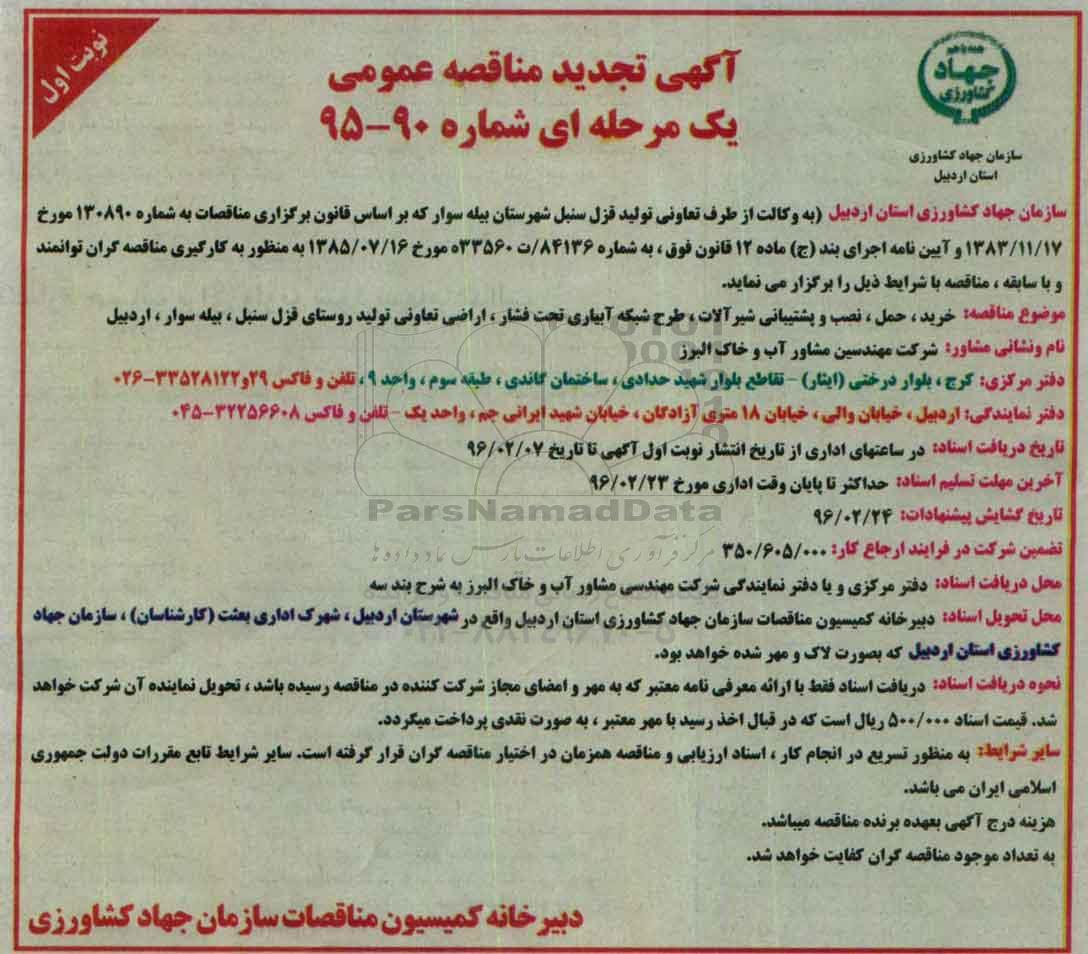 نوبت اول
همه با هم
جهاد
کشاورزی
سازمان جهاد کشاورزی
استان اردبیل
آگهی تجدید مناقصه عمومی
یک مرحله ای شماره ۹۰-۹۵
سازمان جهاد کشاورزی استان اردبیل (به وکالت از طرف تعاونی تولید قزل سنبل شهرستان بیله سوار که بر اساس قانون برگزاری مناقصات به شماره ۱۳۰۸۹۰ مورخ
۱۳۸۳/۱۱/۱۷ و آیین نامه اجرای بند (ج) ماده ۱۲ قانون فوق ، به شماره ۸۴۱۳۶/ت ۳۳۵۶۰ه مورخ ۱۳۸۵/۰۷/۱۶ به منظور به کارگیری مناقصه گران توانمند
و با سابقه ، مناقصه با شرایط ذیل را برگزار می نماید.
موضوع مناقصه: خرید ، حمل ، نصب و پشتیبانی شیرآلات ، طرح شبکه آبیاری تحت فشار ، اراضی تعاونی تولید روستای قزل سنبل ، بیله سوار ، اردبیل
نام ونشانی مشاور: شرکت مهندسین مشاور آب و خاک البرز
دفتر مرکزی: کرج ، بلوار درختی (ایثار) - تقاطع بلوار شهید حدادی ، ساختمان گاندی ، طبقه سوم ، واحد ۹ ، تلفن و فاکس ۲۹و۳۳۵۲۸۱۲۲-۰۲۶
دفتر نمایندگی: اردبیل ، خیابان والی ، خیابان ۱۸ متری آزادگان ، خیابان شهید ایرانی جم ، واحد یک - تلفن و فاکس ۳۲۲۵۶۶۰۸-۰۴۵
تاریخ دریافت اسناد: در ساعتهای اداری از تاریخ انتشار نوبت اول آگهی تا تاریخ ۹۶/۰۲/۰۷
آخرین مهلت تسلیم اسناد: حداکثر تا پایان وقت اداری مورخ ۹۶/۰۲/۲۳
تاریخ گشایش پیشنهادات: ۹۶/۰۲/۲۴
ParsNamadData
تضمین شرکت در فرایند ارجاع کار: ۳۵۰/۶۰۵/۰۰۰
مرکز فرآوری اطلاعات پارس نماد داده ها
محل دریافت اسناد: دفتر مرکزی و یا دفتر نمایندگی شرکت مهندسی مشاور آب و خاک البرز به شرح بند سه
محل تحویل اسناد: دبیرخانه کمیسیون مناقصات سازمان جهاد کشاورزی استان اردبیل واقع در شهرستان اردبیل ، شهرک اداری بعثت (کارشناسان) ، سازمان جهاد
کشاورزی استان اردبیل که بصورت لاک و مهر شده خواهد بود.
نحوه دریافت اسناد: دریافت اسناد فقط با ارائه معرفی نامه معتبر که به مهر و امضای مجاز شرکت کننده در مناقصه رسیده باشد ، تحویل نماینده آن شرکت خواهد
شد. قیمت اسناد ۵۰۰/۰۰۰ ریال است که در قبال اخذ رسید با مهر معتبر ، به صورت نقدی پرداخت میگردد.
سایر شرایط: به منظور تسریع در انجام کار ، اسناد ارزیابی و مناقصه همزمان در اختیار مناقصه گران قرار گرفته است. سایر شرایط تابع مقررات دولت جمهوری
اسلامی ایران می باشد.
هزینه درج آگهی بعهده برنده مناقصه میباشد.
به تعداد موجود مناقصه گران کفایت خواهد شد.
دبیرخانه کمیسیون مناقصات سازمان جهاد کشاورزی